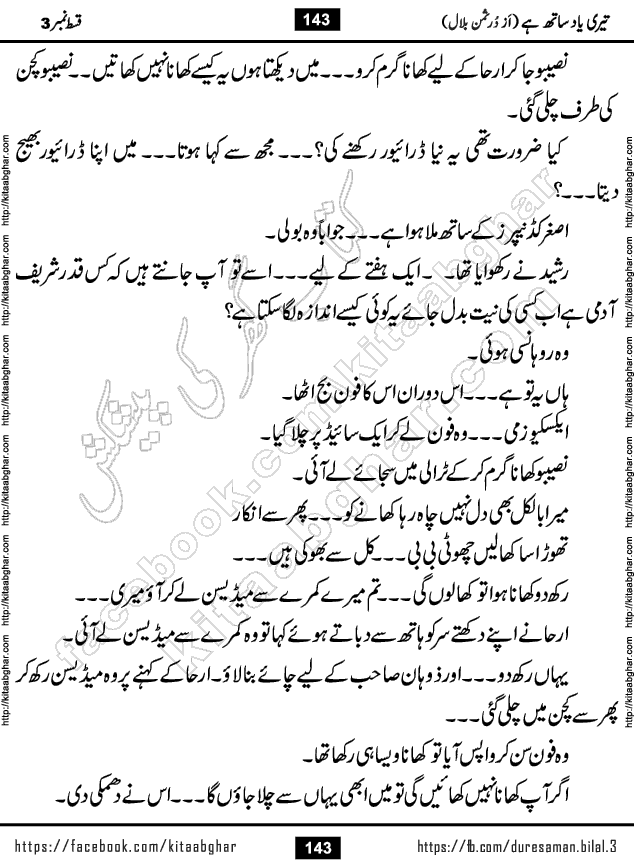 تیری یاد ساتھ ہے (از دُرِثمن بلال) 143 قسط نمبر 3
نصیبو جا کر ارحا کے لیے کھانا گرم کرو۔۔۔ میں دیکھتا ہوں یہ کیسے کھانا نہیں کھاتیں۔۔ نصیبو کچن
کی طرف چلی گئی۔
کیا ضرورت تھی یہ نیا ڈرائیور رکھنے کی؟۔۔۔ مجھ سے کہا ہوتا۔۔۔ میں اپنا ڈرائیور بھیج
دیتا۔۔۔؟
اصغر کڈنیپرز کے ساتھ ملا ہوا ہے۔۔۔ جواباً وہ بولی۔
رشید نے رکھوایا تھا۔ ۔ ایک ہفتے کے لیے۔۔۔ اسے تو آپ جانتے ہیں کہ کس قدر شریف
آدمی ہے اب کسی کی نیت بدل جائے یہ کوئی کیسے اندازہ لگا سکتا ہے؟
وہ روہانسی ہوئی۔
ہاں یہ تو ہے۔۔۔ اس دوران اس کا فون بج اٹھا۔
ایکسکیوز می۔۔۔ وہ فون لے کر ایک سائیڈ پر چلا گیا۔
نصیبو کھانا گرم کر کے ٹرالی میں سجائے لے آئی۔
میرا بالکل بھی دل نہیں چاہ رہا کھانے کو۔۔۔ پھر سے انکار
تھوڑا سا کھا لیں چھوٹی بی بی۔۔۔ کل سے بھوکی ہیں۔۔۔
رکھ دو کھانا ہوا تو کھا لوں گی۔۔۔ تم میرے کمرے سے میڈیسن لے کر آؤ میری۔۔۔
ارحا نے اپنے دکھتے سر کو ہاتھ سے دباتے ہوئے کہا تو وہ کمرے سے میڈیسن لے آئی۔
یہاں رکھ دو۔۔۔ اور ذوہان صاحب کے لیے چائے بنا لاؤ۔ ارحا کے کہنے پر وہ میڈیسن رکھ کر
پھر سے کچن میں چلی گئی۔۔۔
وہ فون سن کر واپس آیا تو کھانا ویسا ہی رکھا تھا۔
اگر آپ کھانا نہیں کھائیں گی تو میں ابھی یہاں سے چلا جاؤں گا۔۔۔ اس نے دھمکی دی۔
کتاب گھر کی پیشکش
facebook.com/kitaabghar
kitaabghar.com
http://kitaabghar.com http://kitaabghar.com http://kitaabghar.com http://kitaabghar.com http://kitaabghar.com http://kitaabghar.com
http://kitaabghar.com http://kitaabghar.com http://kitaabghar.com http://kitaabghar.com http://kitaabghar.com http://kitaabghar.com
https://facebook.com/kitaabghar 143 https://fb.com/duresaman.bilal.3